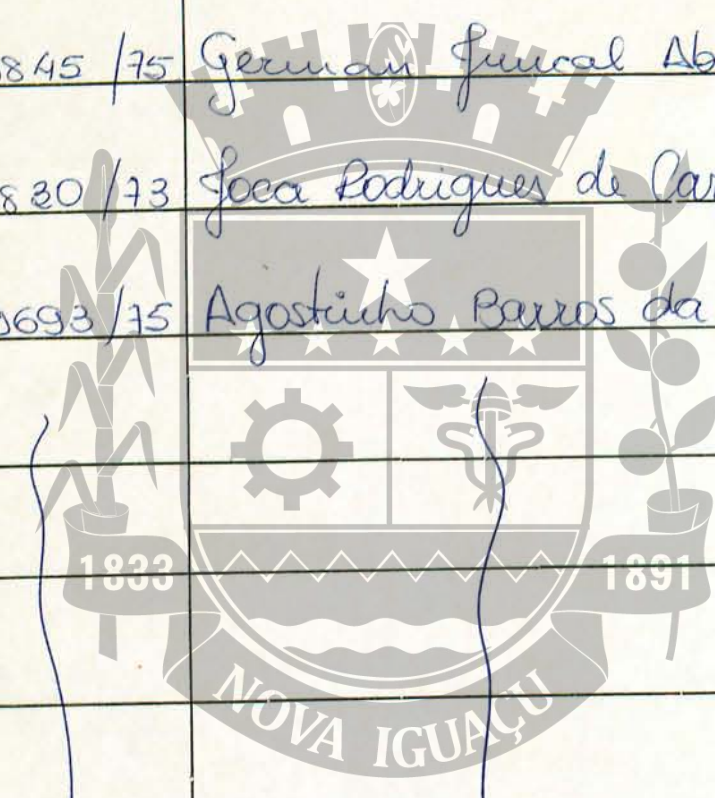 845/75 German Juncal Ab
830/73 Joca Rodrigues de Car
9693/75 Agostinho Barros da
1833 1891
NOVA IGUAÇU